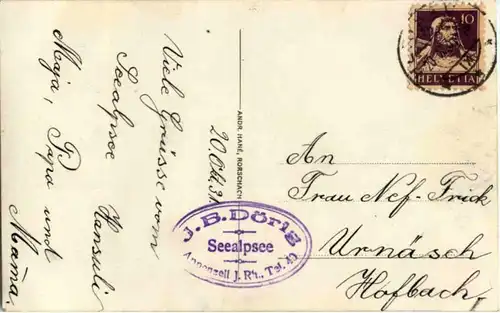 Viele Grüsse vom
Seealpsee
Hansuli
Maja, Papa und
Mama.
20. Okt. 31
ANDR. HANE, RORSCHACH
J. B. Dörig
Seealpsee
Appenzell J. Rh., Tel. 49
10
HELVETIA
An
Frau Nef-Frick
Urnäsch
Hofbach.